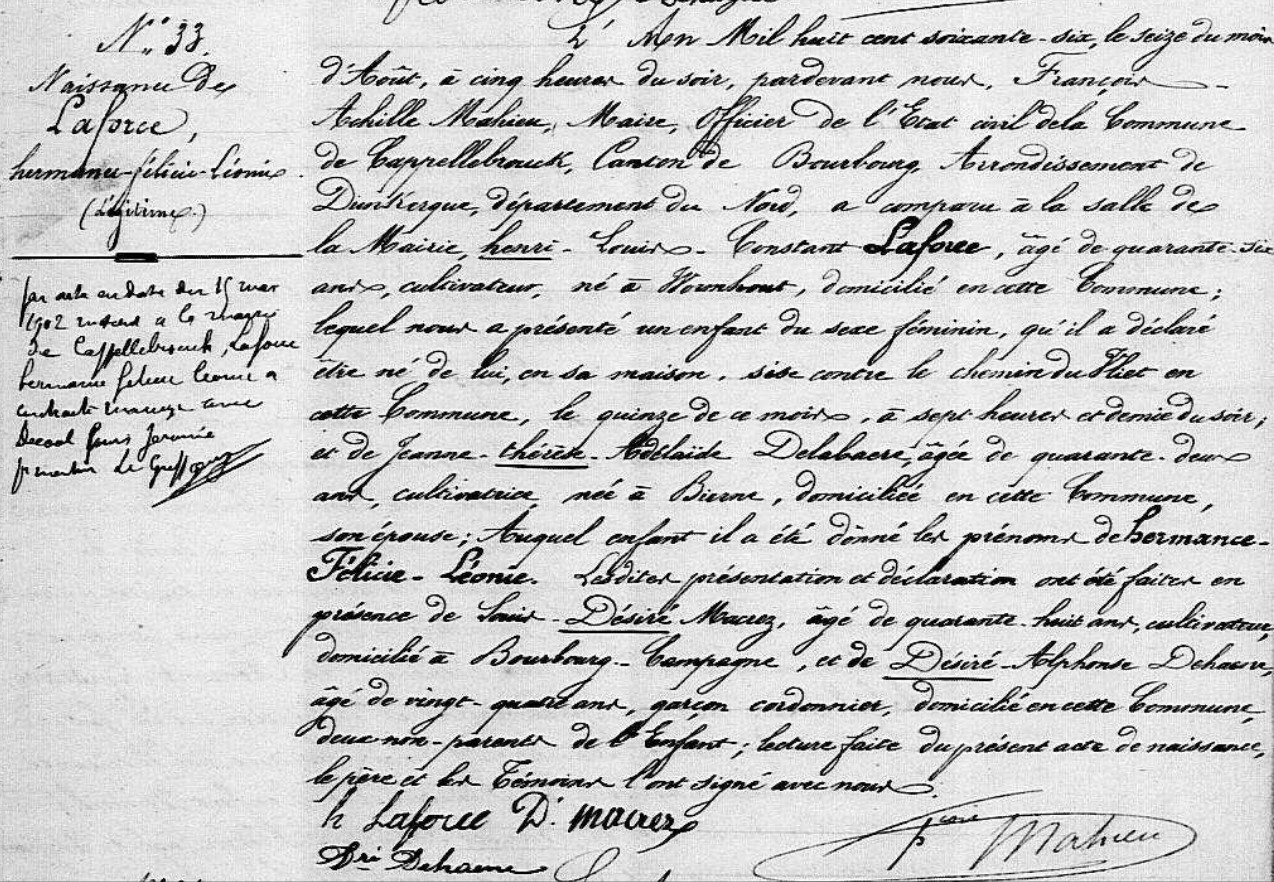 N° 33.
Naissance de
Laforce,
hermance-félicie-Léonie.
(Légitime.)
par acte en date du 15 mai
1902 à la mairie
de Cappellebrouck, Laforce
hermance félicie léonie a
contracté mariage avec
Decool Jérémie
Le Greffier
L'An Mil huit cent soixante-six, le seize du mois
d'Août, à cinq heures du soir, pardevant nous, François
Achille Mahieu, Maire, Officier de l'Etat civil de la Commune
de Cappellebrouck, Canton de Bourbourg, Arrondissement de
Dunkerque, département du Nord, a comparu à la salle de
la Mairie, henri-Louis-Constant Laforce, âgé de quarante-six
ans, cultivateur, né à Wormhout, domicilié en cette Commune;
lequel nous a présenté un enfant du sexe féminin, qu'il a déclaré
être né de lui, en sa maison, sise contre le chemin du Vliet en
cette Commune, le quinze de ce mois, à sept heures et demie du soir;
et de Jeanne-thérèse-Adélaïde Delabaere, âgée de quarante-deux
ans, cultivatrice, née à Bierne, domiciliée en cette Commune,
son épouse; Auquel enfant il a été donné les prénoms de hermance-
Félicie-Léonie. Lesdites présentation et déclaration ont été faites en
présence de Louis-Désiré Macrez, âgé de quarante-huit ans, cultivateur,
domicilié à Bourbourg-Campagne, et de Désiré-Alphonse Dehaene,
âgé de vingt-quatre ans, garçon cordonnier, domicilié en cette Commune,
deux non-parents de l'Enfant; lecture faite du présent acte de naissance,
le père et les Témoins l'ont signé avec nous.
h Laforce D. Macrez
Dré Dehaene
Mahieu